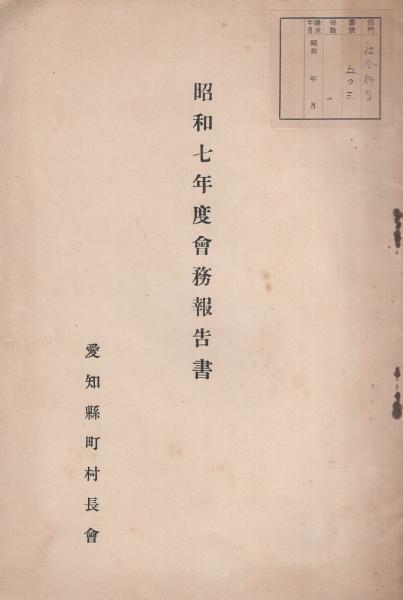 昭和七年度會務報告書
愛知縣町村長會
部門 社会科学
番號 五〇三
冊數 一
年月 昭和 年 月